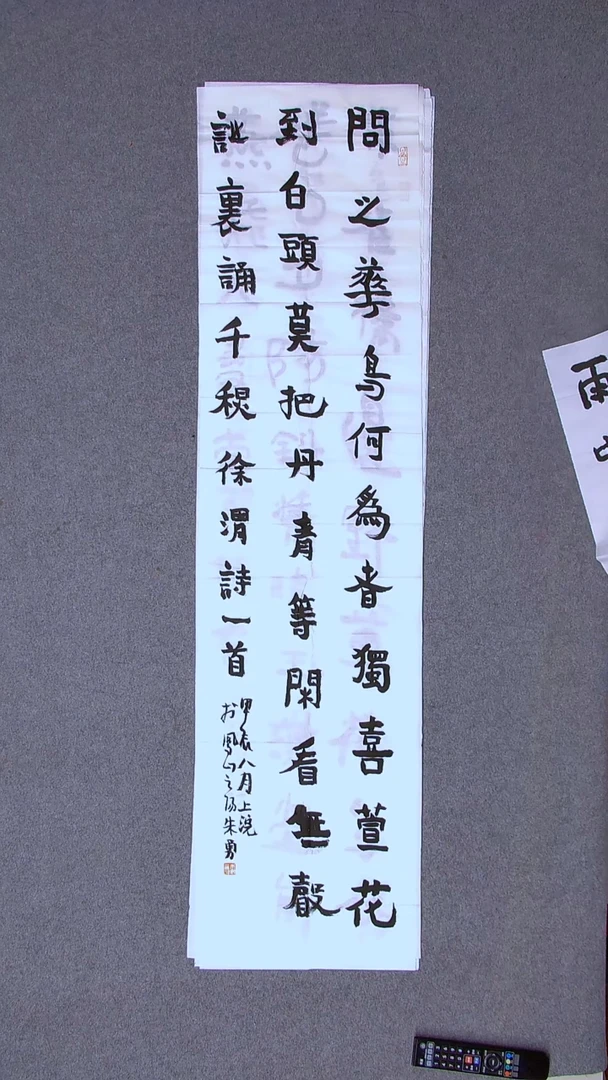 問之華鳥何為者獨喜萱花
到白頭莫把丹青等閑看無聲
詩裏誦千秋徐渭詩一首
甲辰八月上浣
於鳳山之陽朱勇